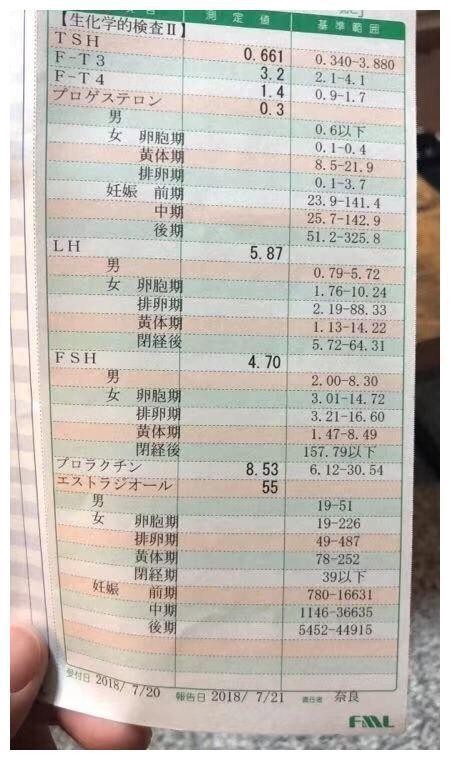 測定値 基準範囲
【生化学的検査Ⅱ】
TSH 0.661 0.340-3.880
F-T3 3.2 2.1-4.1
F-T4 1.4 0.9-1.7
プロゲステロン 0.3
男 0.6以下
女 卵胞期 0.1-0.4
黄体期 8.5-21.9
排卵期 0.1-3.7
妊娠 前期 23.9-141.4
中期 25.7-142.9
後期 51.2-325.8
LH 5.87
男 0.79-5.72
女 卵胞期 1.76-10.24
排卵期 2.19-88.33
黄体期 1.13-14.22
閉経後 5.72-64.31
FSH 4.70
男 2.00-8.30
女 卵胞期 3.01-14.72
排卵期 3.21-16.60
黄体期 1.47-8.49
閉経後 157.79以下
プロラクチン 8.53 6.12-30.54
エストラジオール 55
男 19-51
女 卵胞期 19-226
排卵期 49-487
黄体期 78-252
閉経期 39以下
妊娠 前期 780-16631
中期 1146-36635
後期 5452-44915
受付日 2018/ 7/20 報告日 2018/ 7/21 責任者 奈良
FML